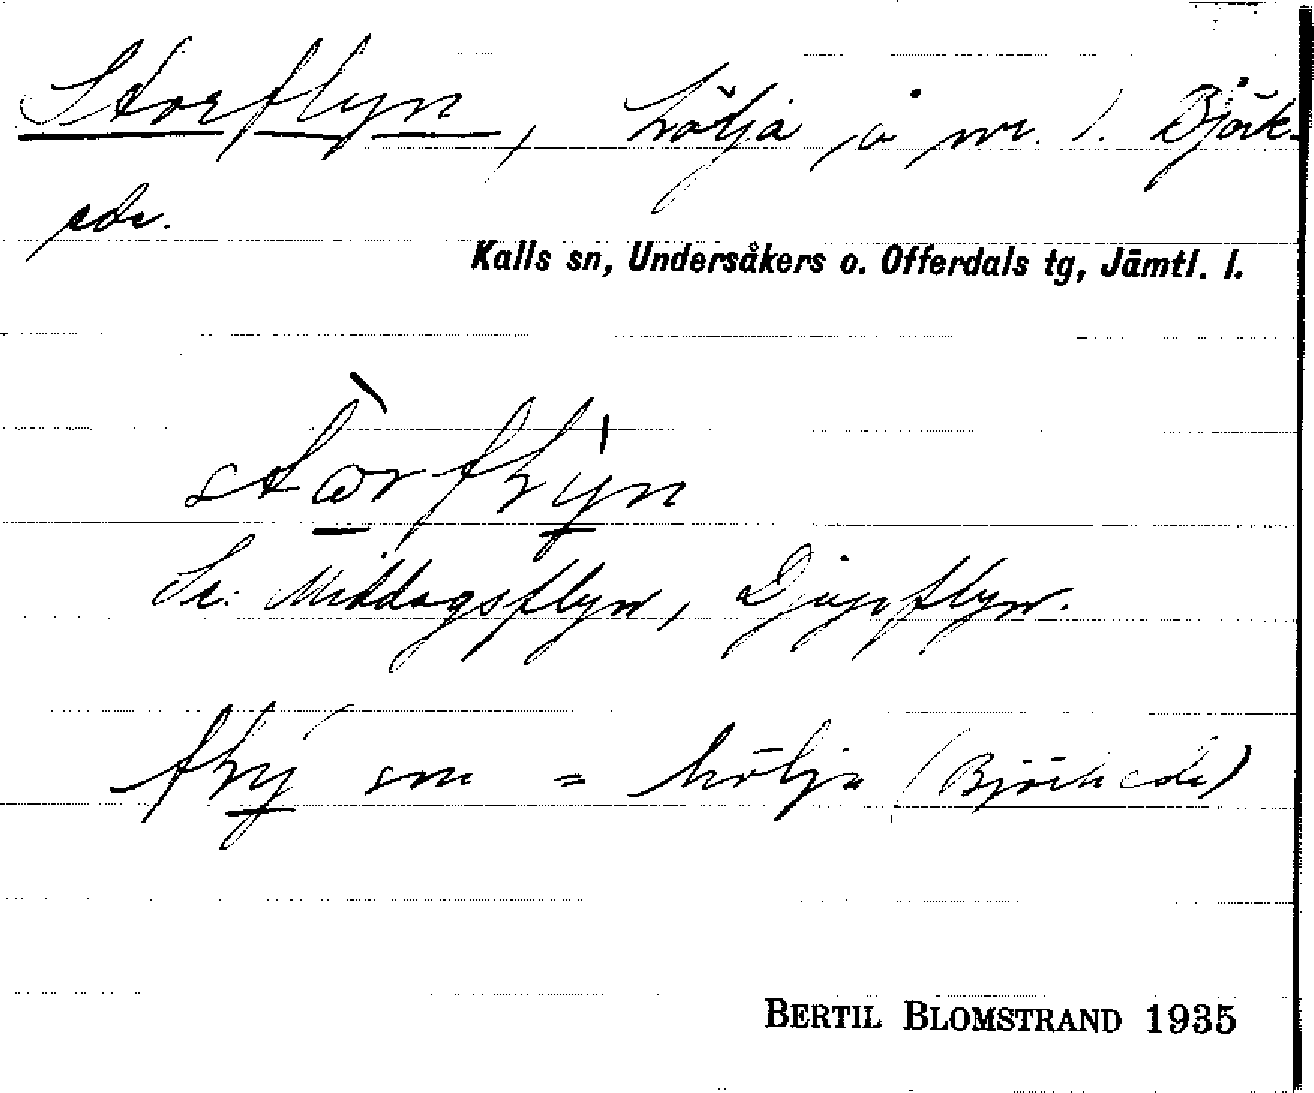 Storflyn, hölja i nr. 1. Björk-
ede.
Kalls sn, Undersåkers o. Offerdals tg, Jämtl. l.
stɷrfḷyn
Se: Middagsflyn, Djupflyn.
fḷy sm = hölja (Björkede)
BERTIL BLOMSTRAND 1935